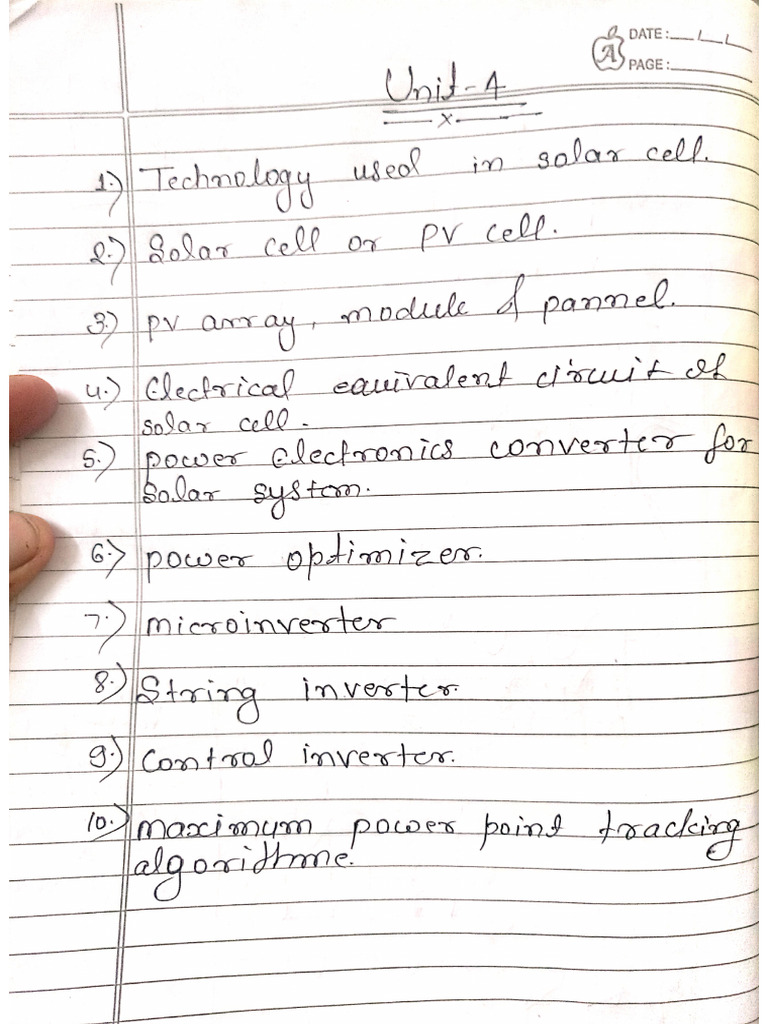 DATE:
PAGE:
A
Unit-4
x
1.) Technology used in solar cell.
2.) Solar cell or PV cell.
3.) PV array, module & pannel.
4.) Electrical equivalent circuit of
solar cell.
5.) power electronics converter for
Solar system.
6.) power optimizer.
7.) microinverter
8.) String inverter.
9.) control inverter.
10.) maximum power point tracking
algorithme.